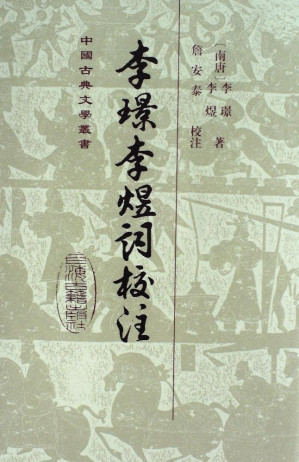 〔南唐〕李璟 著
李煜
詹安泰 校注
李璟李煜詞校注
中國古典文學叢書
上海古籍出版社